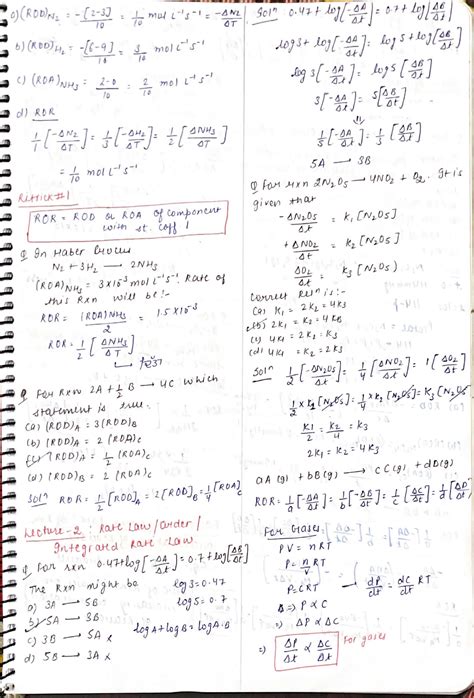 a) (ROD)N₂ = -[2-3]/10 = 1/10 mol L⁻¹ S⁻¹ = -ΔN₂/ΔT
b) (ROD)H₂ = -[6-9]/10 = 3/10 mol L⁻¹ S⁻¹
c) (ROA)NH₃ = 2-0/10 = 2/10 mol L⁻¹ S⁻¹
d) ROR
1/1 [-ΔN₂/ΔT] = 1/3 [-ΔH₂/ΔT] = 1/2 [ΔNH₃/ΔT]
= 1/10 mol L⁻¹ S⁻¹
ROR = ROD or ROA of component
with st. coff 1
Q In Haber Process
N₂ + 3H₂ → 2NH₃
(ROA)NH₃ = 3×10⁻³ mol L⁻¹ S⁻¹. Rate of
this Rxn will be :-
ROR = (ROA)NH₃/2 = 1.5×10⁻³
ROR = 1/2 [ΔNH₃/ΔT]
Q For Rxn 2A + 1/2 B → 4C which
statement is true.
(a) (ROD)A = 3(ROD)B
(b) (ROD)A = 2(ROA)C
(c) (ROD)A = 1/2 (ROA)C
(d) (ROD)B = 2(ROA)C
Solⁿ ROR = 1/2 (ROD)A = 2(ROD)B = 1/4 (ROA)C
Lecture-2 Rate Law/order/
Integrated Rate Law
Q For rxn 0.47+log[-ΔA/Δt] = 0.7+log[ΔB/Δt]
The Rxn might be log3=0.47
a) 3A → 5B log5=0.7
b) 5A → 3B
c) 3B → 5A × logA+logB=logA·B
d) 5B → 3A ×
Solⁿ 0.47+log[-ΔA/Δt] = 0.7+log[ΔB/Δt]
log3+log[-ΔA/Δt] = log5+log[ΔB/Δt]
log3[-ΔA/Δt] = log5[ΔB/Δt]
3[-ΔA/Δt] = 5[ΔB/Δt]
1/5[-ΔA/Δt] = 1/3[ΔB/Δt]
5A → 3B
Q For rxn 2N₂O₅ → 4NO₂ + O₂. It is
given that
-ΔN₂O₅/Δt = K₁[N₂O₅]
+ΔNO₂/Δt = K₂[N₂O₅]
ΔO₂/Δt = K₃[N₂O₅]
Correct Relⁿ is :-
(a) K₁ = 2K₂ = 4K₃
(b) 2K₁ = K₂ = 4K₃
(c) 4K₁ = 2K₁ = K₃
(d) 4K₁ = K₂ = 2K₃
Solⁿ 1/2[-ΔN₂O₅/Δt] = 1/4[ΔNO₂/Δt] = 1[ΔO₂/Δt]
1/2 × K₁[N₂O₅] = 1/4 × K₂[N₂O₅] = K₃[N₂O₅]
K₁/2 = K₂/4 = K₃
2K₁ = K₂ = 4K₃
aA(g) + bB(g) → cC(g) + dD(g)
ROR = 1/a[-ΔA/Δt] = 1/b[-ΔB/Δt] = 1/c[ΔC/Δt] = 1/d[ΔD/Δt]
For Gases
PV = nRT
P = n/V RT
P = CRT → dP/dt = dC/dt RT
⇒ P ∝ C
⇒ ΔP ∝ ΔC
⇒ ΔP/Δt ∝ ΔC/Δt For gases